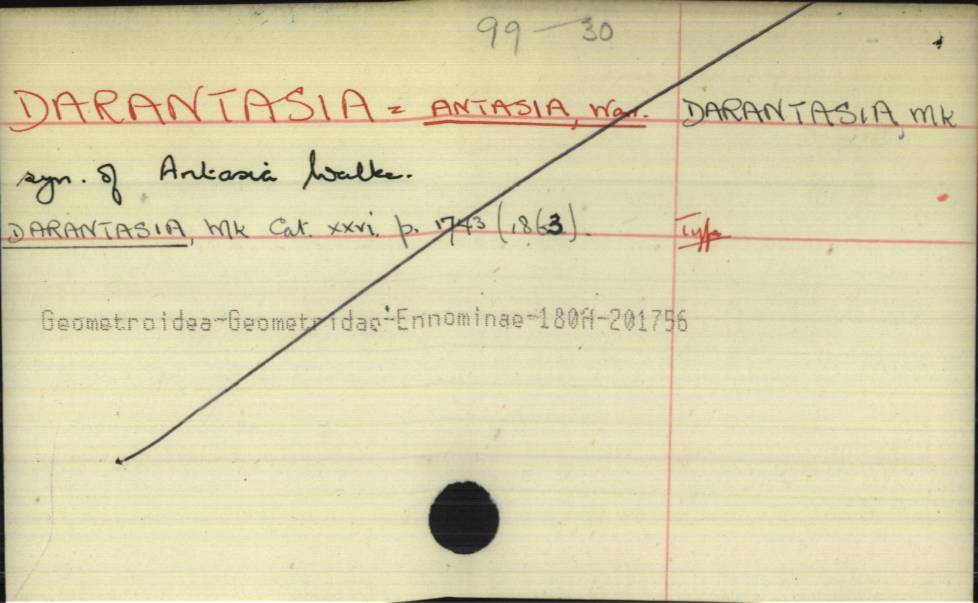 99 — 30
DARANTASIA = ANTASIA, War. DARANTASIA, Mk
syn. of Antasia Walke.
DARANTASIA, Mk Cat. xxvi. p. 1743 (1863). Type
Geometroidea-Geometridae-Ennominae-180A-201756